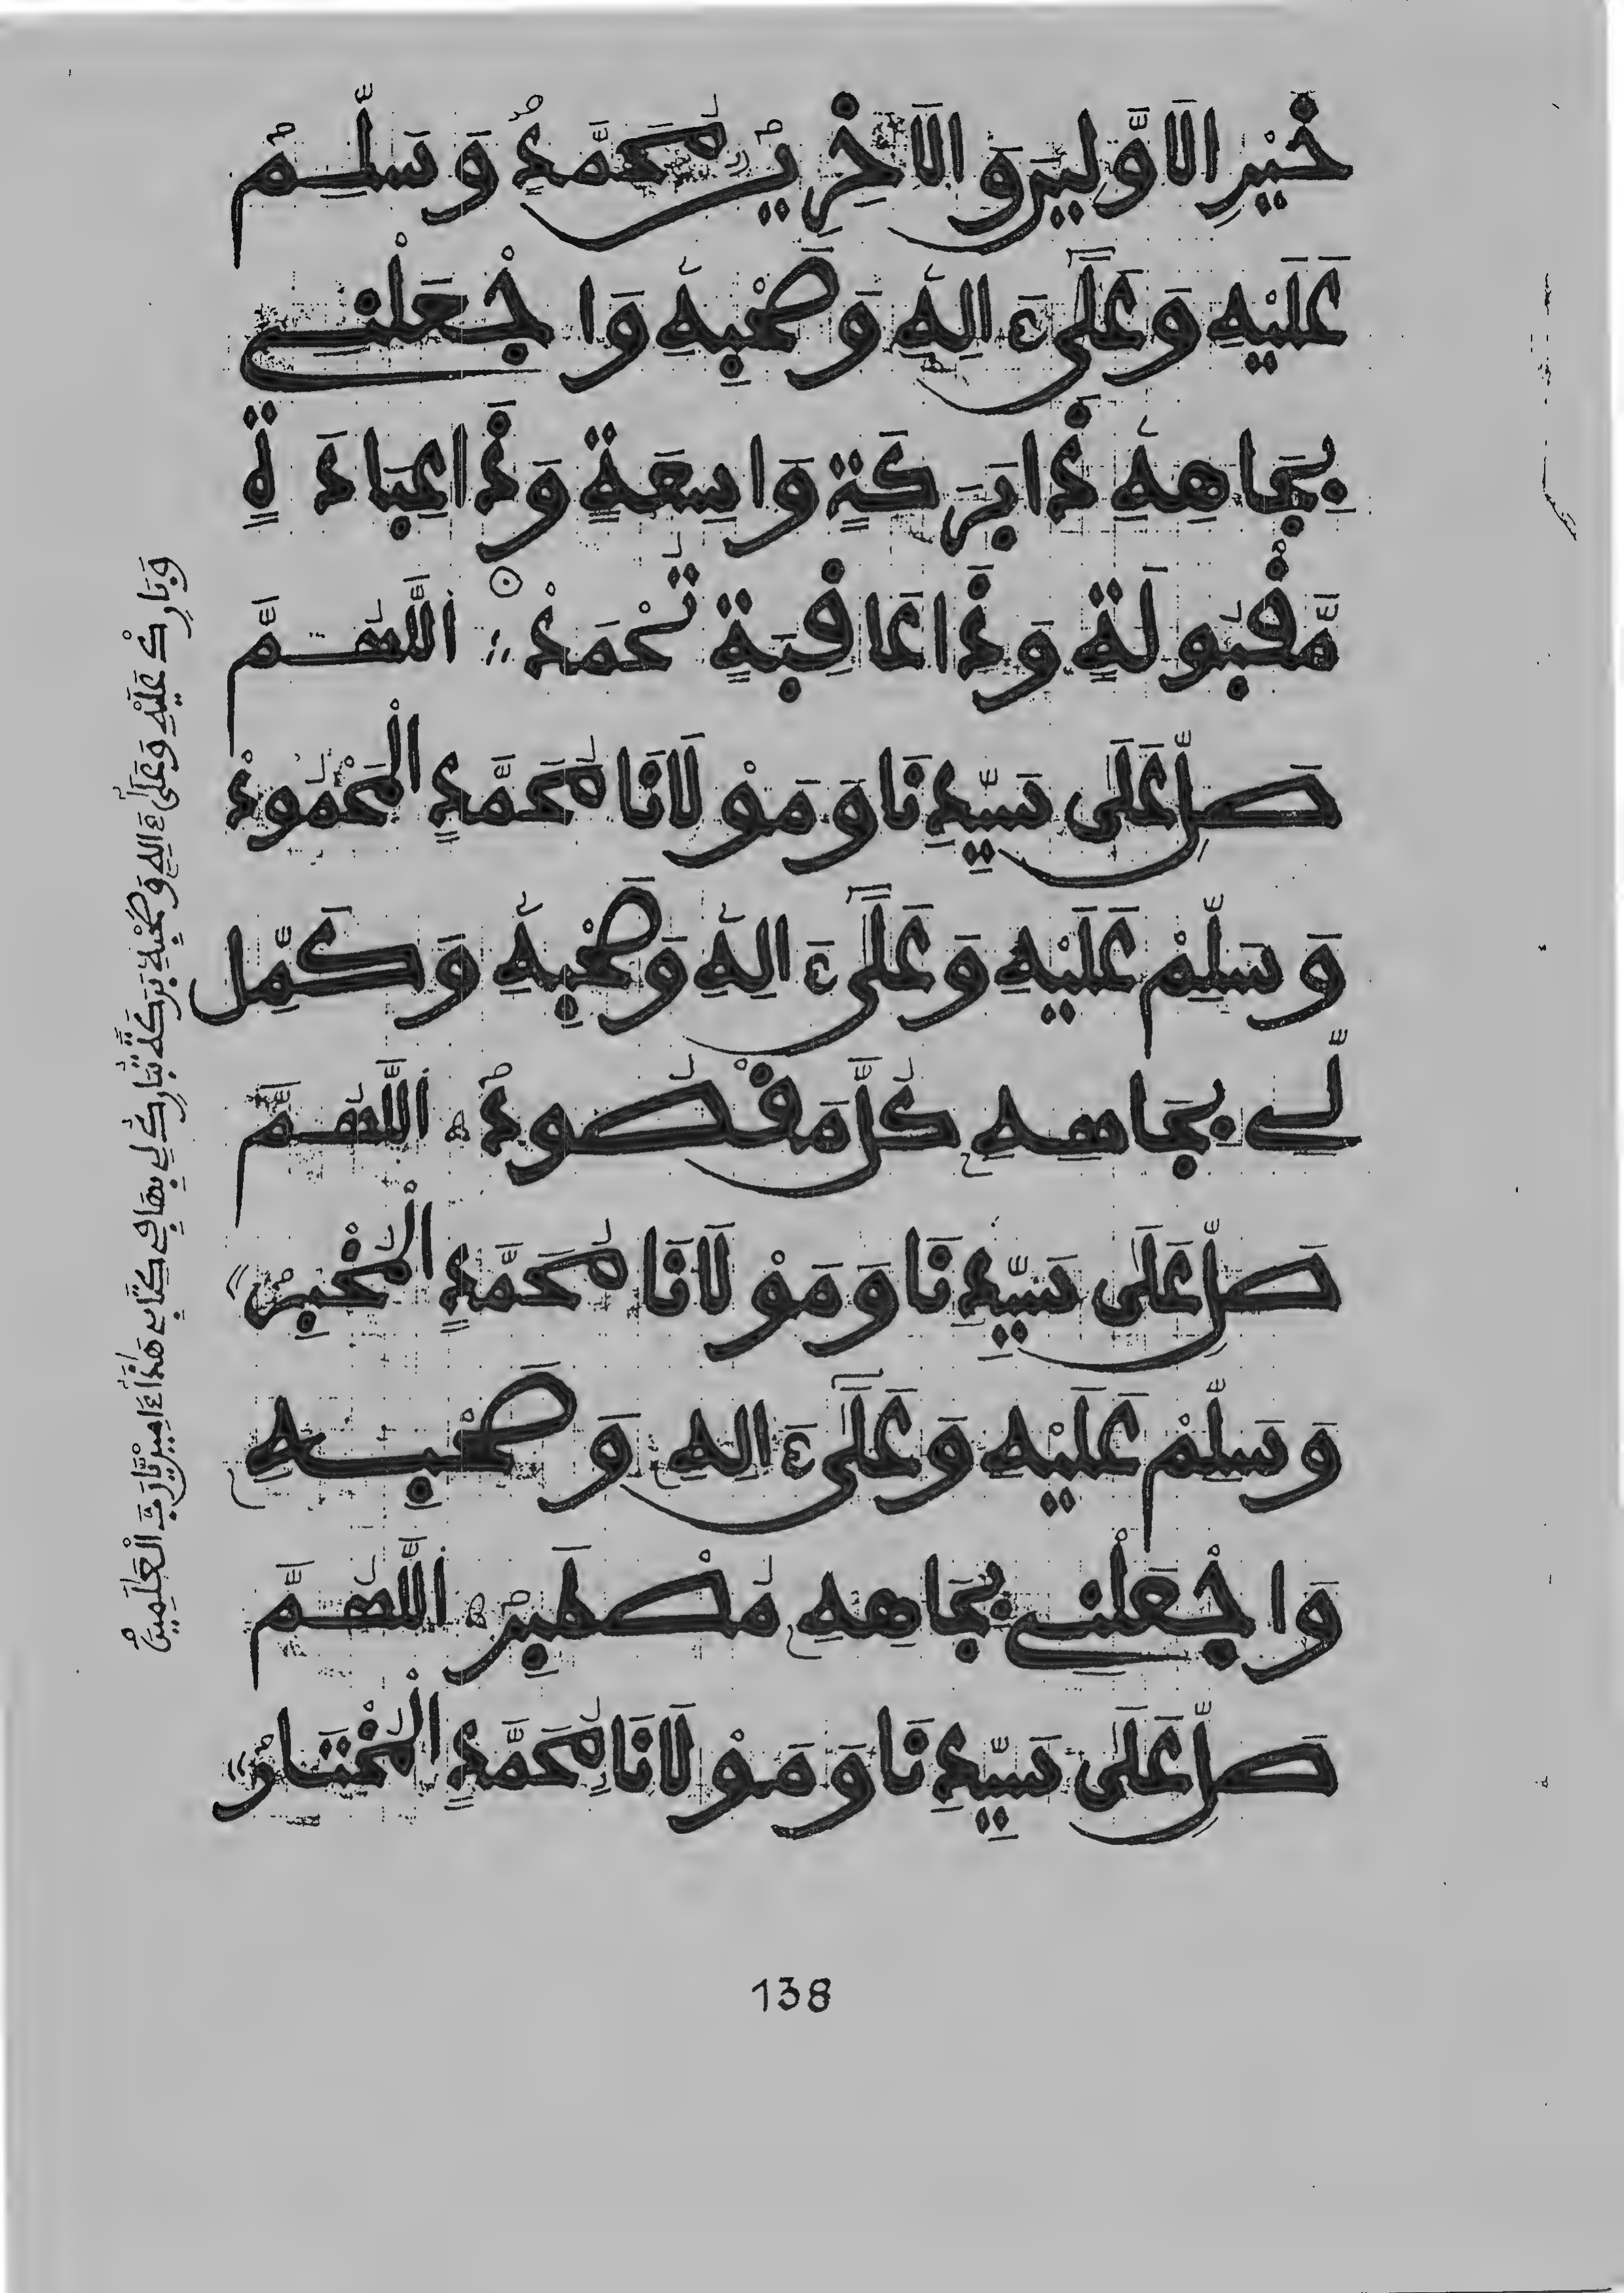 خَيْرِ الَاوَّلِيرَ وَالَاخِرِيرَ مُحَمَّدٍ وَسَلِّمْ
عَلَيْهِ وَعَلَىٰٓ ءَالِهِ وَصَحْبِهِ وَاجْعَلْنِے
بِجَاهِهِ ذَا بَرَكَةٍ وَاسِعَةٍ وَذَا عِبَادَةٍ
مَّقْبُولَةٍ وَذَا عَافِيَةٍ تُحْمَدْ اللَّهُمَّ
صَلِّ عَلَى سَيِّدِنَا وَمَوْلَانَا مُحَمَّدٍ الْمَحْمُودْ
وَسَلِّمْ عَلَيْهِ وَعَلَىٰٓ ءَالِهِ وَصَحْبِهِ وَكَمِّل
لِّے بِجَاهِهِ كُلَّ مَقْصُودْ اللَّهُمَّ
صَلِّ عَلَى سَيِّدِنَا وَمَوْلَانَا مُحَمَّدٍ الْمُخْبِرْ
وَسَلِّمْ عَلَيْهِ وَعَلَىٰٓ ءَالِهِ وَصَحْبِهِ
وَاجْعَلْنِے بِجَاهِهِ مُصْطَبِرْ اللَّهُمَّ
صَلِّ عَلَى سَيِّدِنَا وَمَوْلَانَا مُحَمَّدٍ الْمُخْتَارْ
وَبَارِكْ عَلَيْهِ وَعَلَىٰٓ ءَالِهِ وَصَحْبِهِ بَرَكَةً تُبَارِكُ لِے بِهَا فِے كِتَابِے هَٰذَا ءَامِيرَ يَارَبَّ الْعَٰلَمِيرَ
138